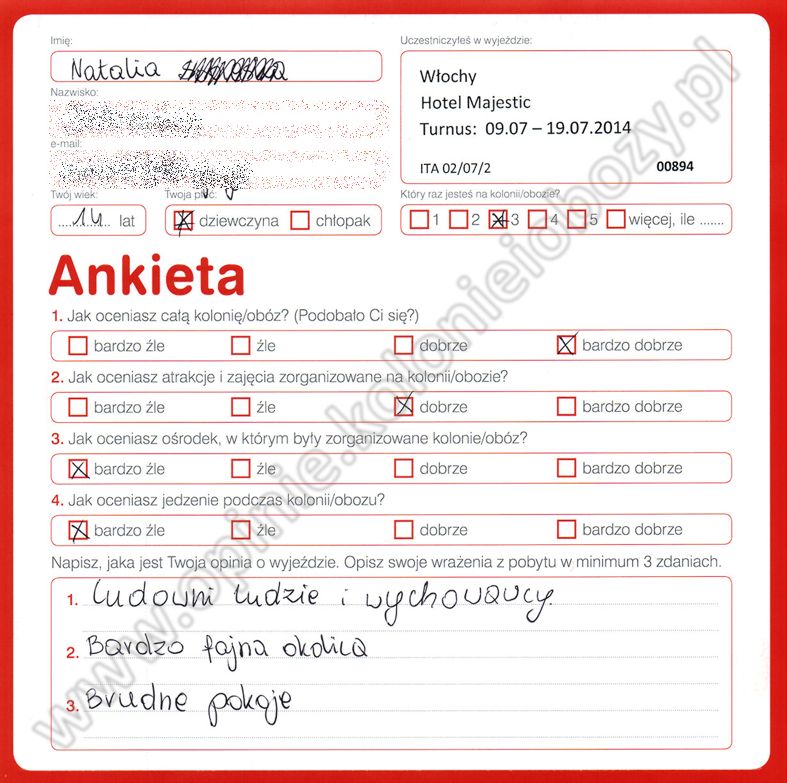 Imię:
Natalia
Nazwisko:
e-mail:
Twój wiek:
14 lat
Twoja płeć:
dziewczyna chłopak
Uczestniczyłeś w wyjeździe:
Włochy
Hotel Majestic
Turnus: 09.07 – 19.07.2014
ITA 02/07/2 00894
Który raz jesteś na kolonii/obozie?
1 2 3 4 5 więcej, ile .......
Ankieta
1. Jak oceniasz całą kolonię/obóz? (Podobało Ci się?)
bardzo źle źle dobrze bardzo dobrze
2. Jak oceniasz atrakcje i zajęcia zorganizowane na kolonii/obozie?
bardzo źle źle dobrze bardzo dobrze
3. Jak oceniasz ośrodek, w którym były zorganizowane kolonie/obóz?
bardzo źle źle dobrze bardzo dobrze
4. Jak oceniasz jedzenie podczas kolonii/obozu?
bardzo źle źle dobrze bardzo dobrze
Napisz, jaka jest Twoja opinia o wyjeździe. Opisz swoje wrażenia z pobytu w minimum 3 zdaniach.
1. Cudowni ludzie i wychowawcy.
2. Bardzo fajna okolica
3. Brudne pokoje
www.opinie.kolonieiobozy.pl